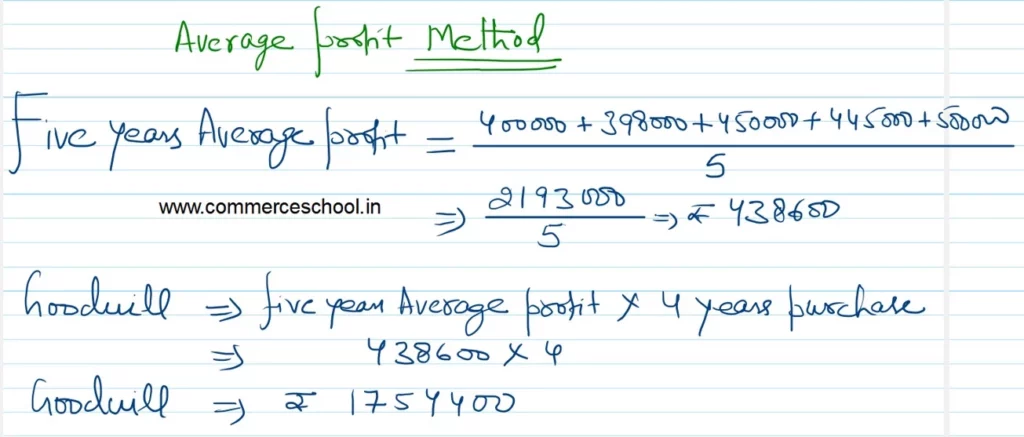 Average profit Method
Five years Average profit = 400000 + 398000 + 450000 + 445000 + 500000
5
www.commerceschool.in
⇒ 2193000 ⇒ ₹ 438600
5
Goodwill ⇒ five years Average profit × 4 years purchase
⇒ 438600 × 4
Goodwill ⇒ ₹ 1754400